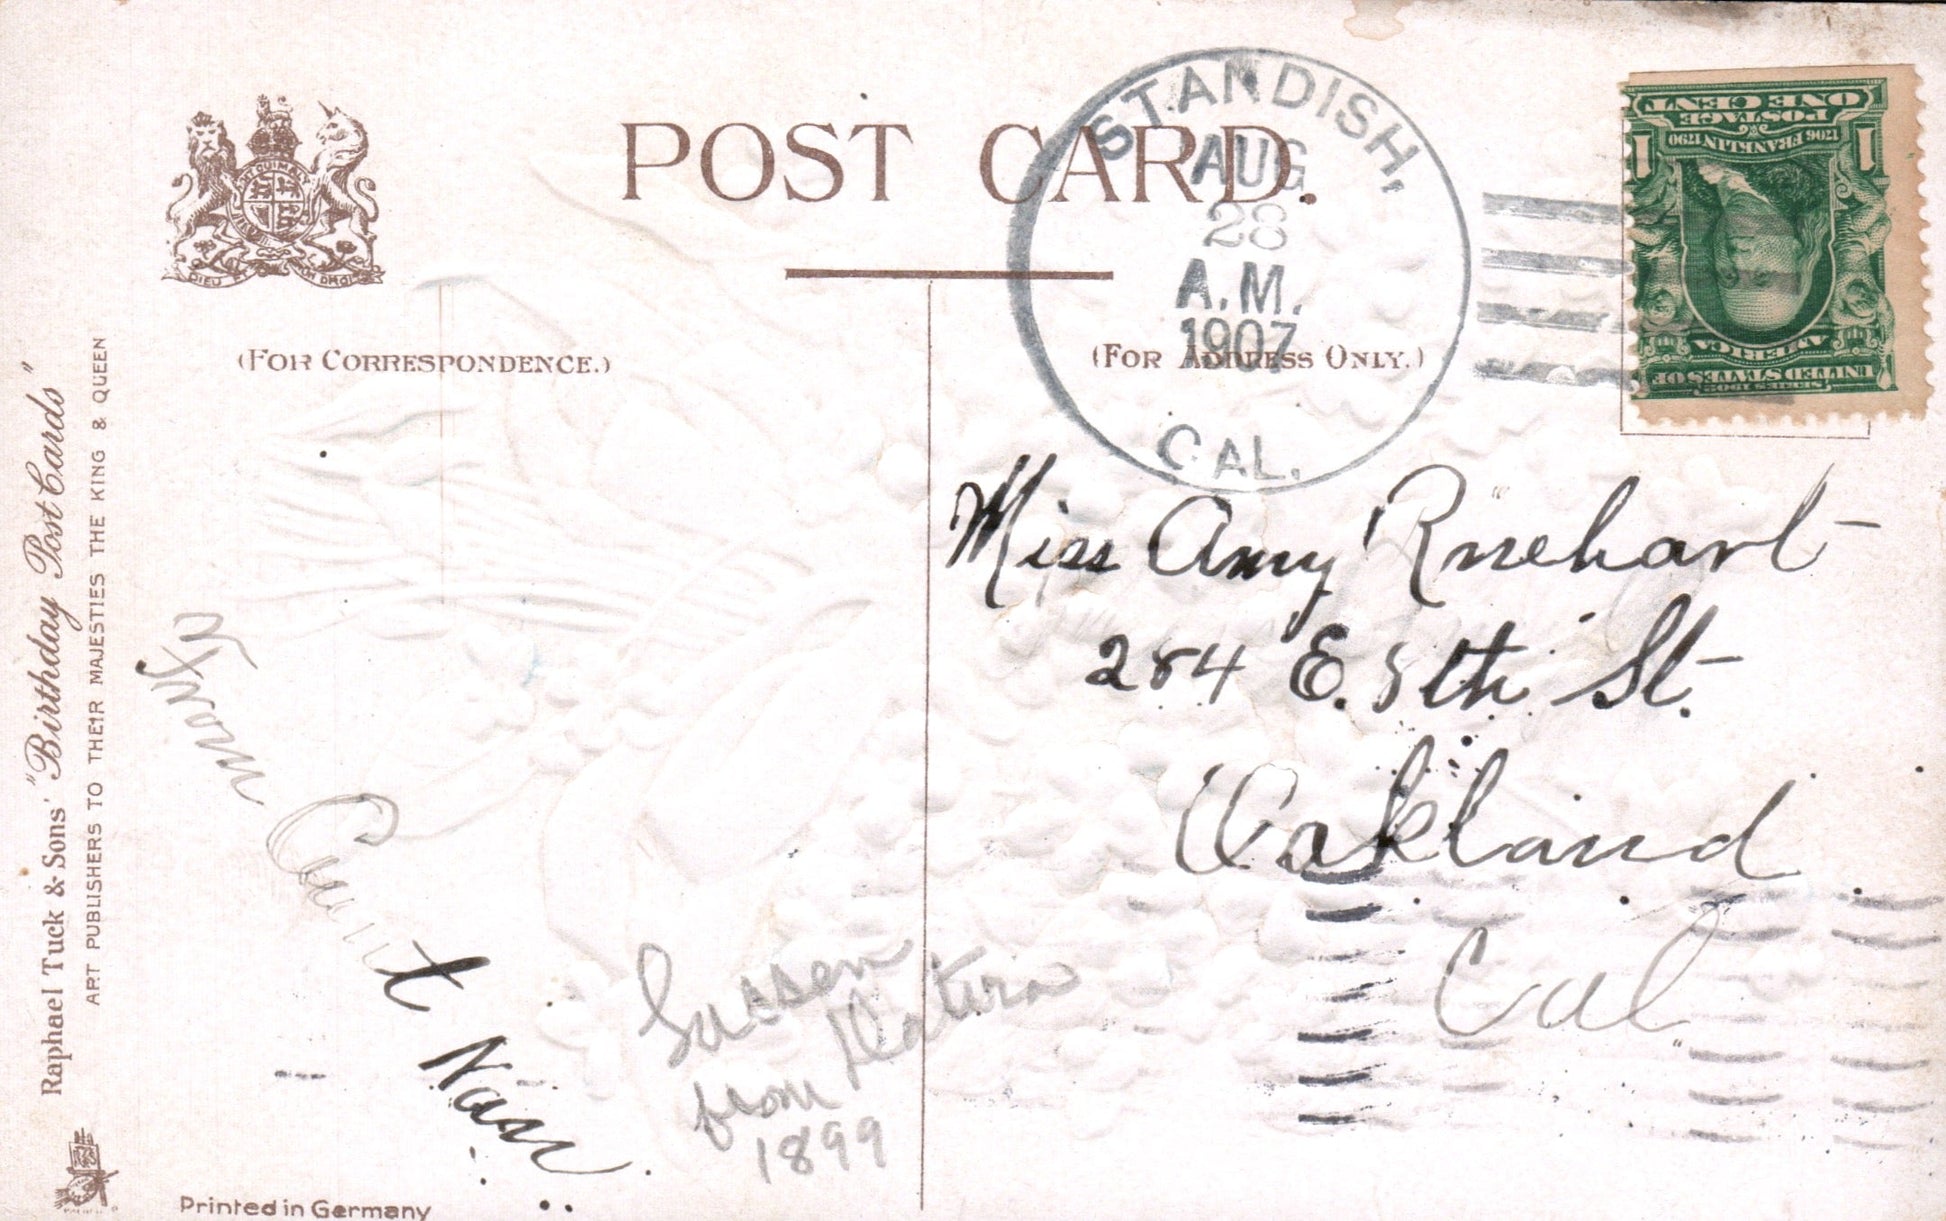 POST CARD.
STANDISH,
AUG
28
A.M.
1907
CAL.
ONE CENT
POSTAGE
1706 FRANKLIN 1790
1 1
AMERICA
UNITED STATES OF
SERIES 1902
DIEU ET MON DROIT
(FOR CORRESPONDENCE.)
(FOR ADDRESS ONLY.)
Raphael Tuck & Sons' "Birthday Post Cards"
ART PUBLISHERS TO THEIR MAJESTIES THE KING & QUEEN
From Aunt Nan
Lassen
from
1899
Printed in Germany
Miss Amy Rinehart
284 E. 8th St.
Oakland
Cal